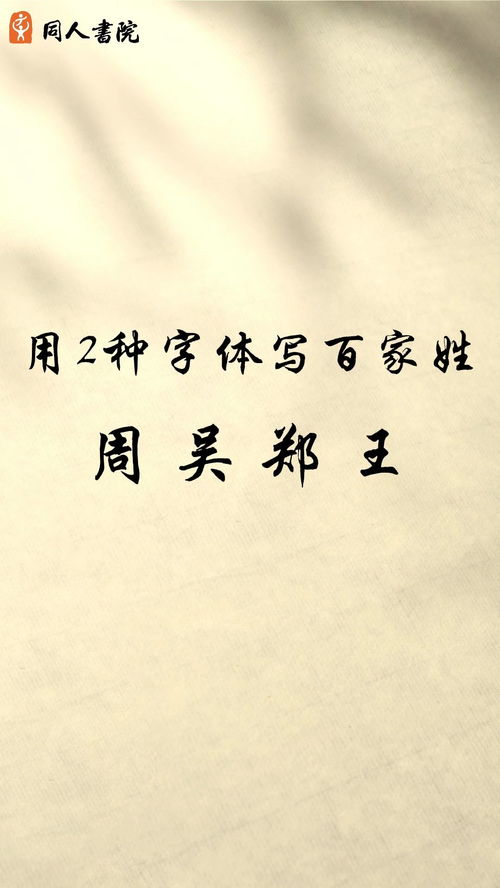 同人書院
用2种字体写百家姓
周吴郑王